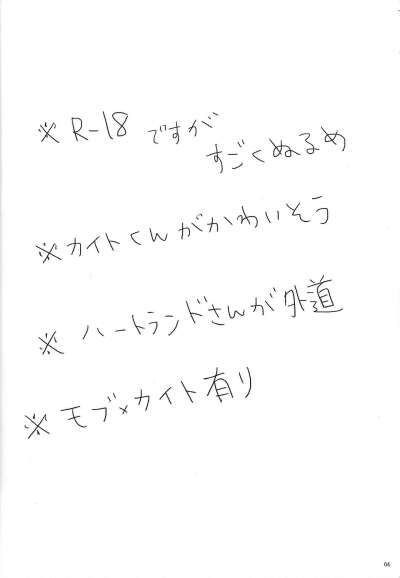 ※ R-18 ですが
すごくぬるめ
※カイトくんがかわいそう
※ ハートランドさんが外道
※ モブ×カイト有り
04